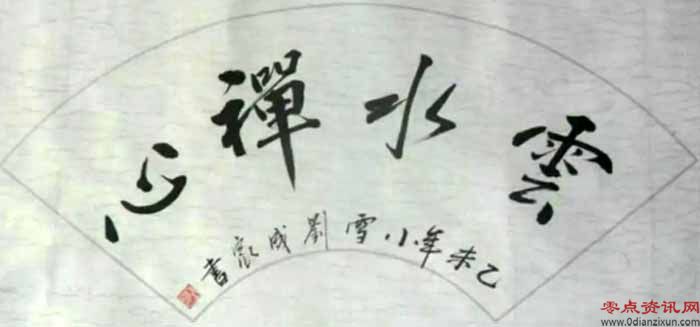 雲水禪心
乙未年小雪劉成家書
零点资讯网
www.0dianzixun.com